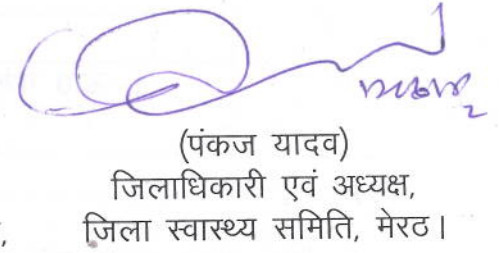 (पंकज यादव)
जिलाधिकारी एवं अध्यक्ष,
, जिला स्वास्थ्य समिति, मेरठ।